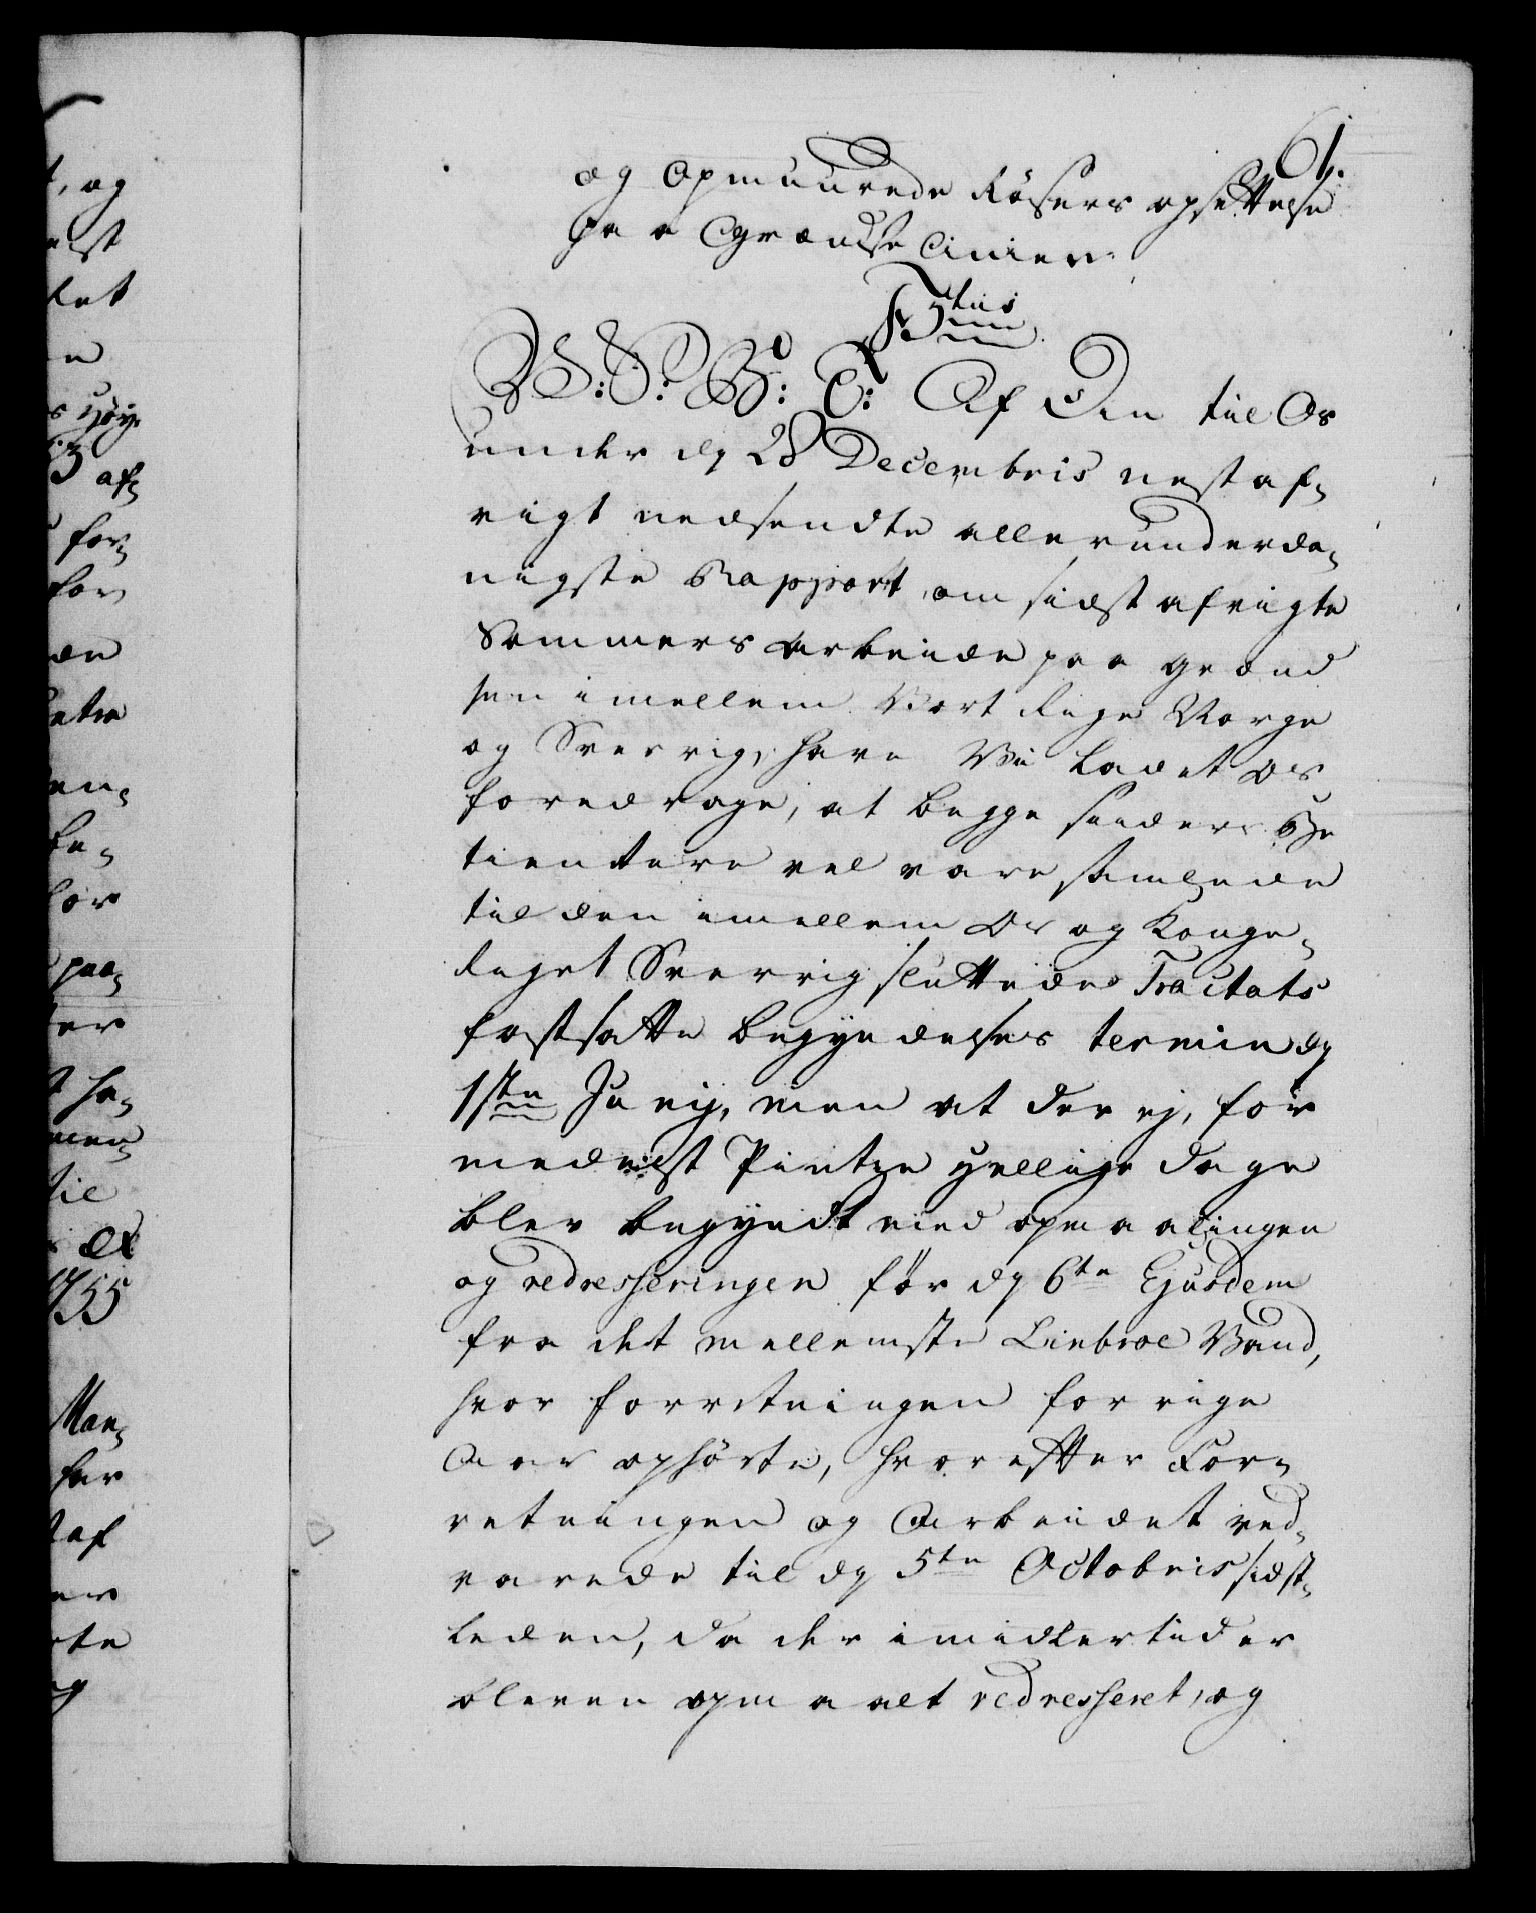 61.
og Opmuurede Röisers opsættelse
paa Grændse Linien.
F: 5tus
W: S: G: T: Af Den til Os
under dg 28 Decembris nest af-
vigt nedsendte allerunderda-
nigste Rapport, om sidst afvigte
Sommers Arbeide paa Grænd
sen imellem Vort Rige Norge
og Sverrig, have Vii ladet Os
foredrage, at begge siders Be
tientere vel vare samlede
til den imellem Os og Konge-
riget Sverrig sluttede Tractats
fastsatte begyndelses termin dg
1ste Junij, men at der ej, for
medelst Pintze Hellige dage
blev begyndt med opmaalingen
og redresseringen för dg 6te Ejusdem
fra det mellemste Linbroe Vand,
hvor forretningen forrige
Aar ophörte, hvorefter For-
retningen og Arbeidet ved-
varede til dg 5te Octobris sidst-
leden, da der imidlertid er
bleven opmaalt redresseret, og
t, og
est
ket
n
s Höy-
af-
for-
for
de
en-
be-
for
paa-
ter
ha-
men
til
et
1755
Man-
har
af
er
te
og